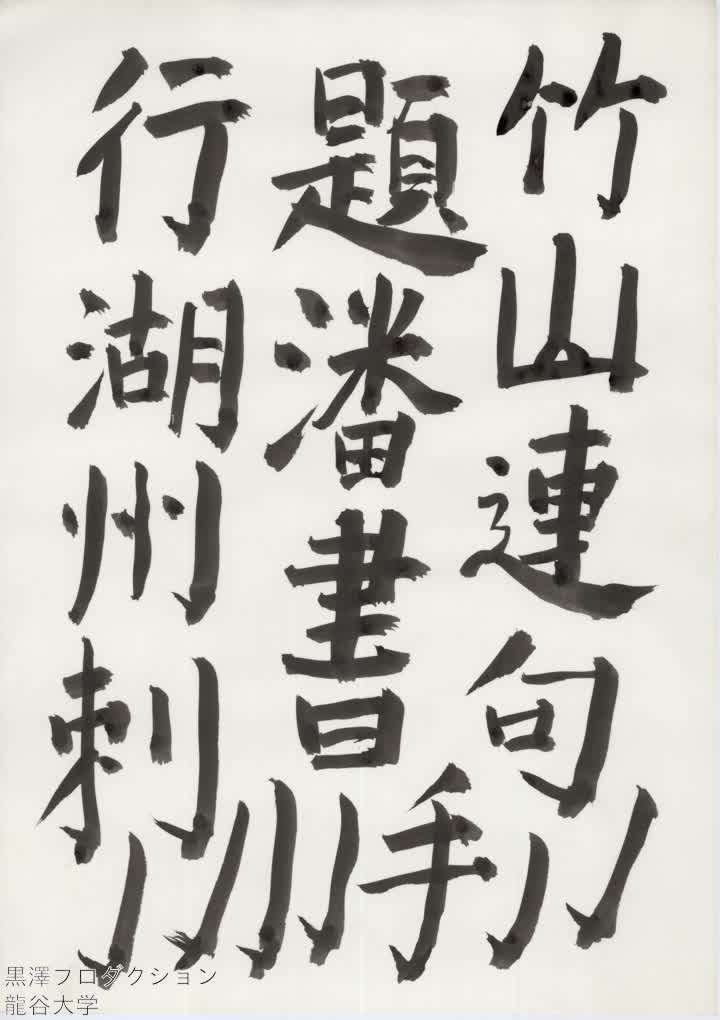 竹山連句
題潘書
行湖州刺
手
黒澤プロダクション
龍谷大学